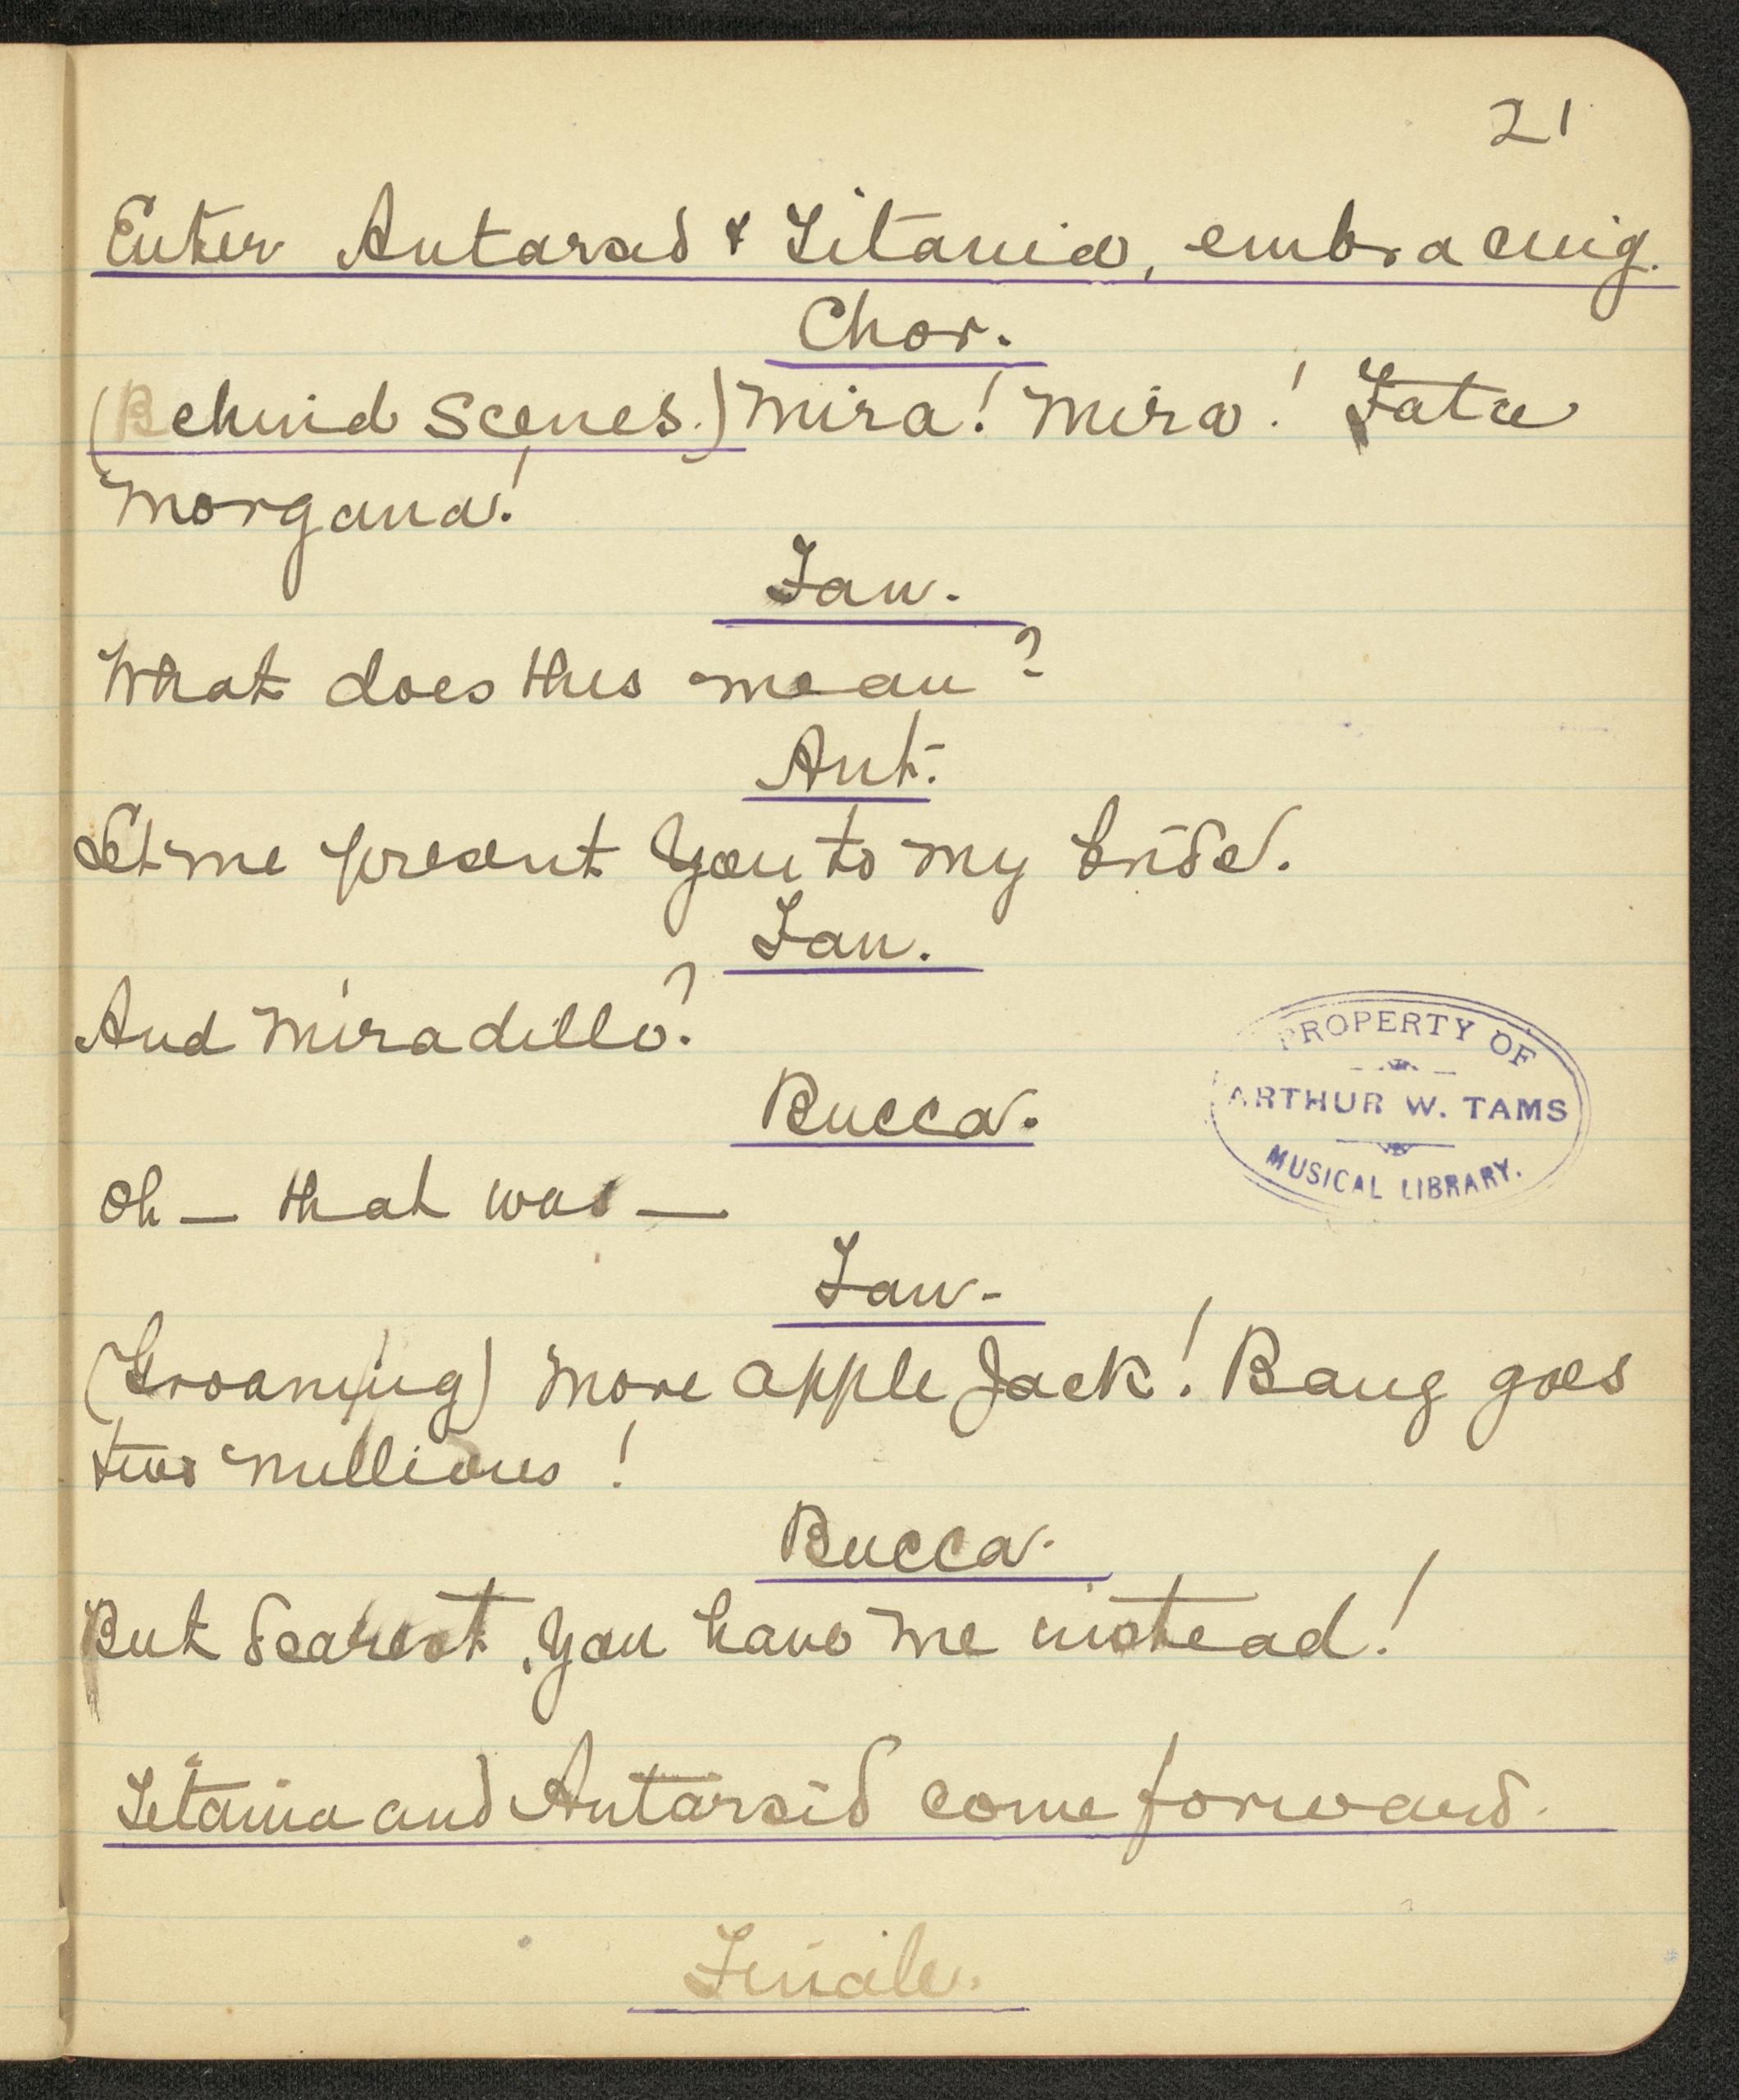 21
Enter Antarsid & Titania, embracing.
Chor.
(Behind Scenes.) Mira! Mira! Fata
Morgana!
Fan.
What does this mean?
Ant.
Let me present you to my bride.
Fan.
And Miradillo?
Bucca.
PROPERTY OF
ARTHUR W. TAMS
MUSICAL LIBRARY.
Oh — that was —
Fan.
(Groaning) More apple Jack! Bang goes
two millions!
Bucca.
But dearest, you have me instead!
Titania and Antarsid come forward.
Finale.